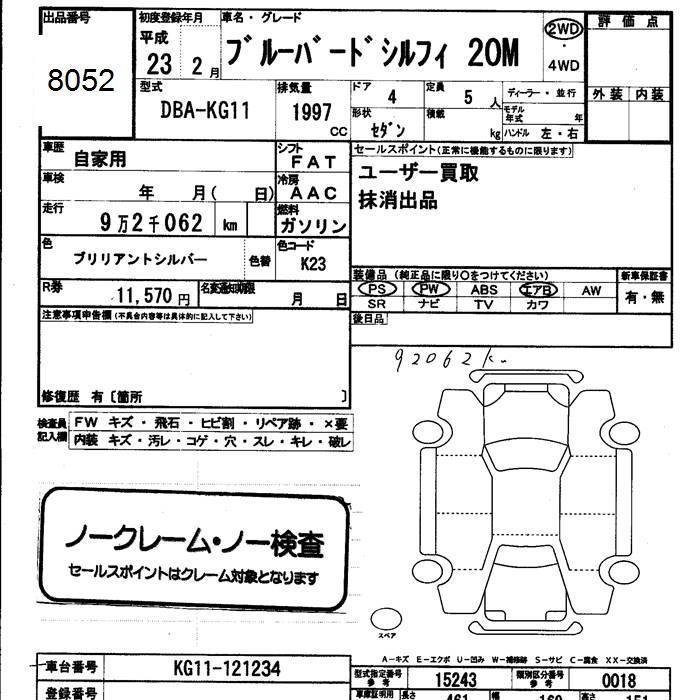 出品番号
8052
初度登録年月
平成
23 2 月
車名・グレード
ブルーバードシルフィ 20M
2WD
・
4WD
評価点
外装 内装
型式
DBA-KG11
排気量
1997
CC
ドア
4
定員
5 人
ディーラー・並行
形状
セダン
積載
kg
モデル年式 年
ハンドル 左・右
車歴
自家用
シフト
FAT
車検
年 月( 日)
冷房
AAC
走行
9万2千062 km
燃料
ガソリン
色
ブリリアントシルバー
色替
色コード
K23
R券
11,570 円
名変通知期限
月 日
セールスポイント(正常に機能するものに限ります)
ユーザー買取
抹消出品
装備品 (純正品に限り○をつけてください)
PS PW ABS エアB AW
SR ナビ TV カワ
新車保証書
有・無
後日品
注意事項申告欄(不具合内容等は具体的に記入して下さい)
修復歴 有〔箇所 〕
92062k
検査員記入欄
FW キズ・飛石・ヒビ割・リペア跡・×要
内装 キズ・汚レ・コゲ・穴・スレ・キレ・破レ
ノークレーム・ノー検査
セールスポイントはクレーム対象となります
スペア
A-キズ E-エクボ U-凹み W-補修跡 S-サビ C-腐食 XX-交換済
車台番号
KG11-121234
登録番号
型式指定番号
参考
15243
類別区分番号
参考
0018
車庫証明用
長さ
461
幅
169
高さ
151